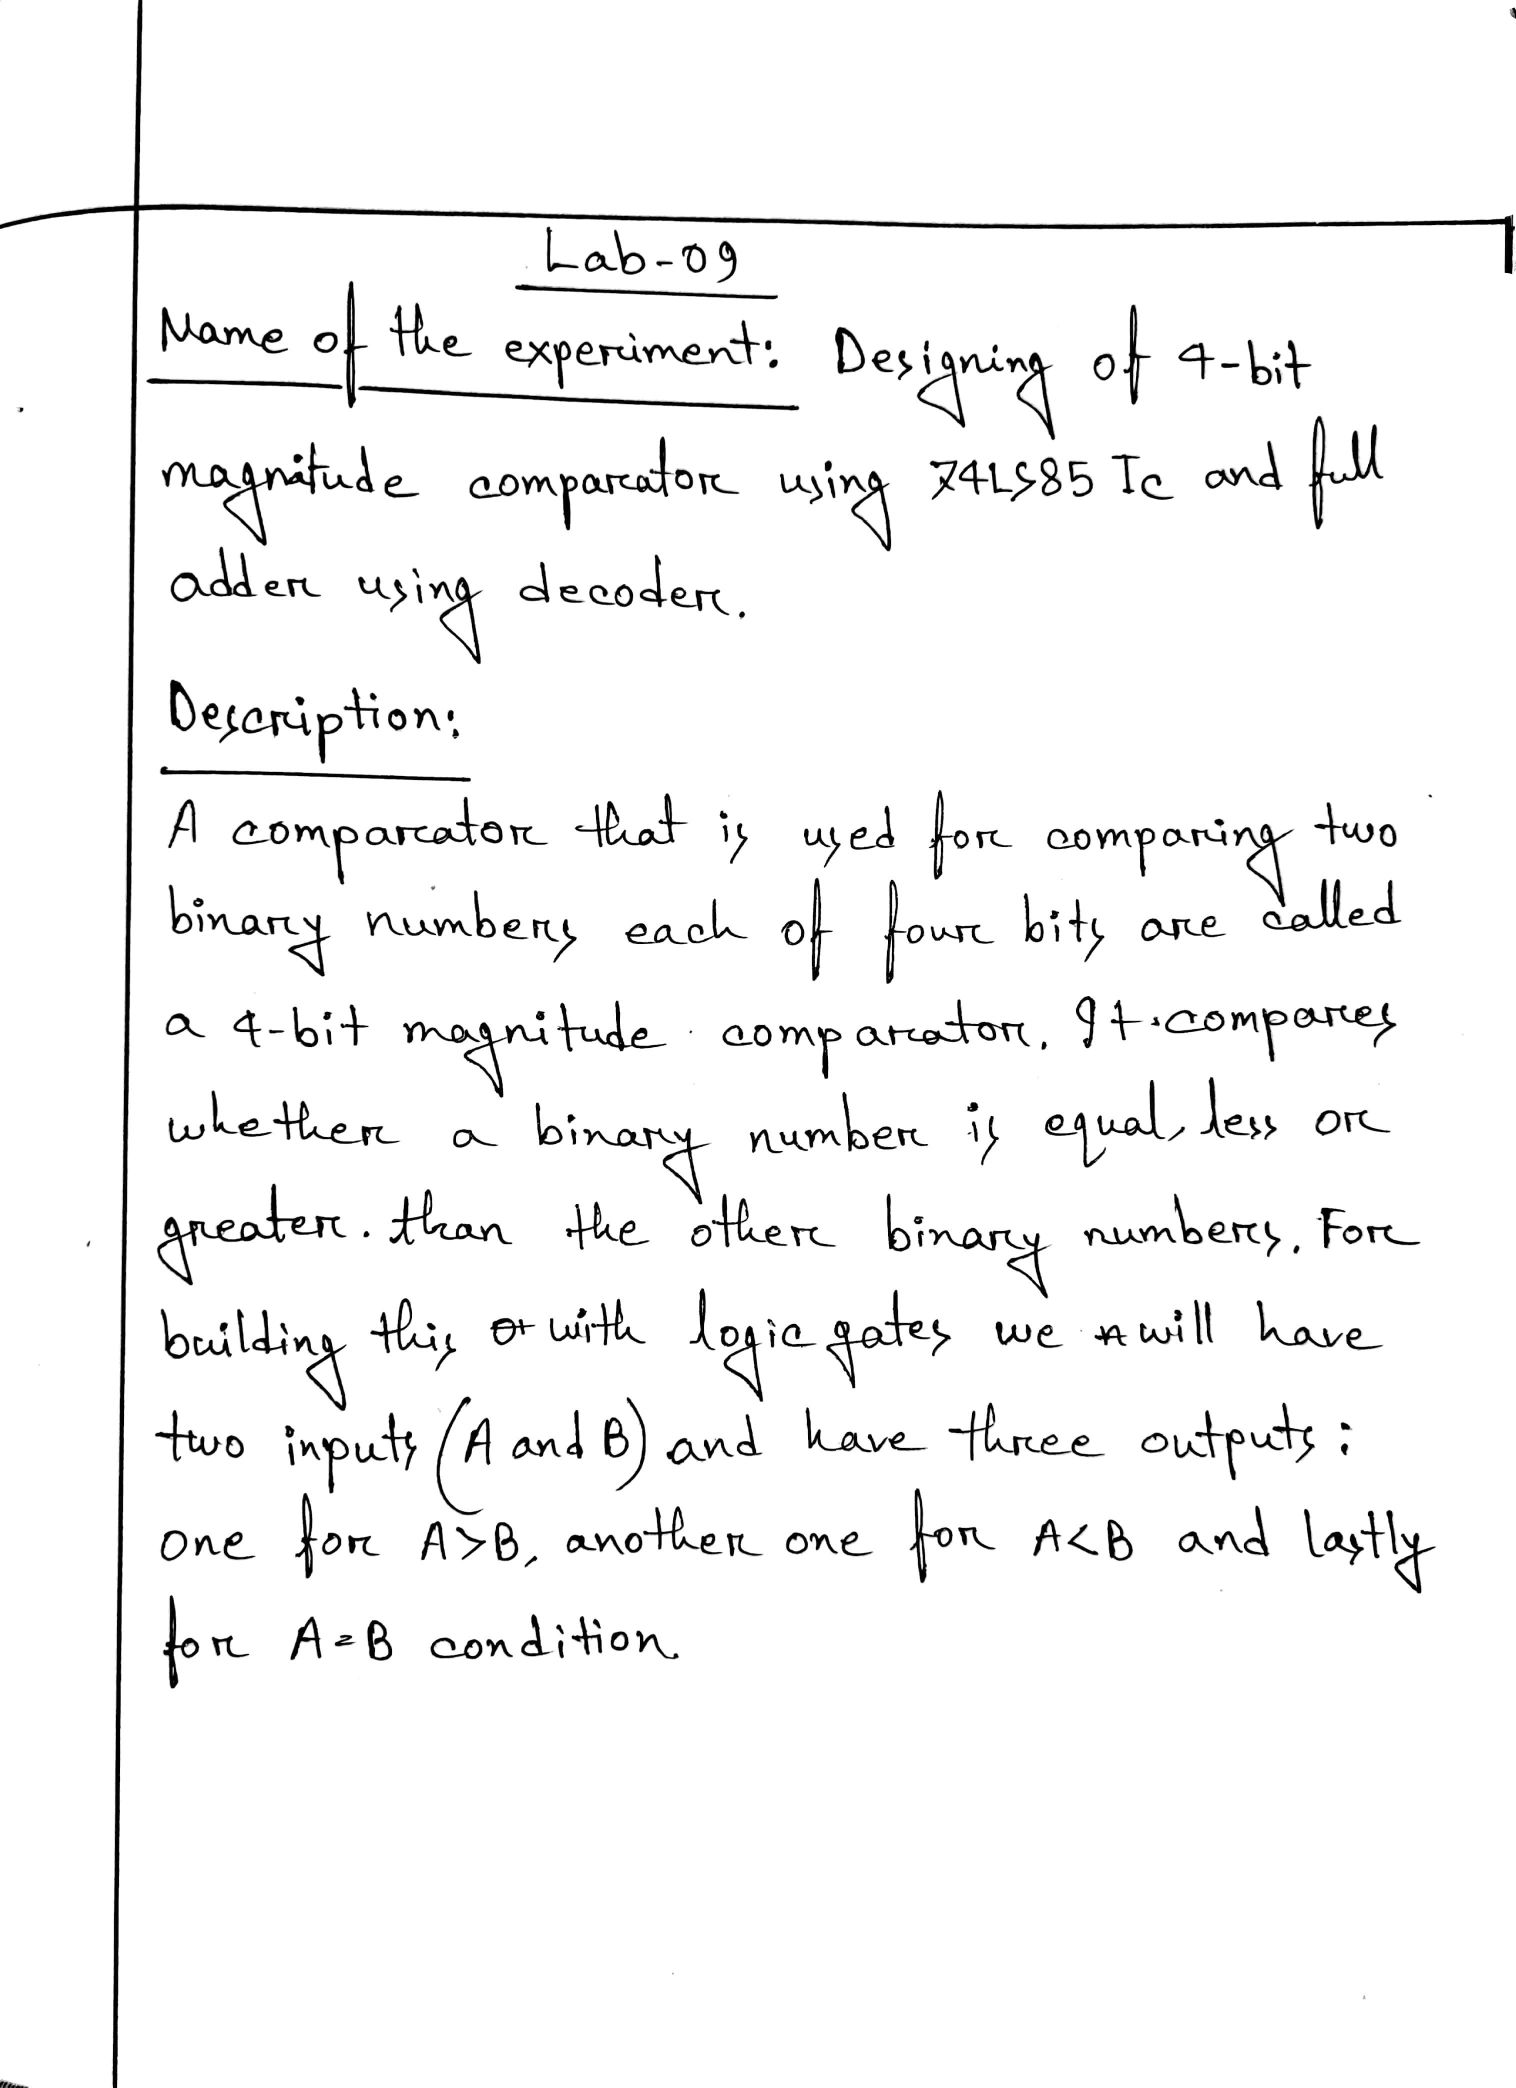 Lab-09
Name of the experiment: Designing of 4-bit
magnitude comparator using 74LS85 Ic and full
adder using decoder.
Description:
A comparator that is used for comparing two
binary numbers each of four bits are called
a 4-bit magnitude comparator. It compares
whether a binary number is equal, less or
greater. than the other binary numbers. For
building this with logic gates we will have
two inputs (A and B) and have three outputs:
one for A>B, another one for A<B and lastly
for A=B condition.